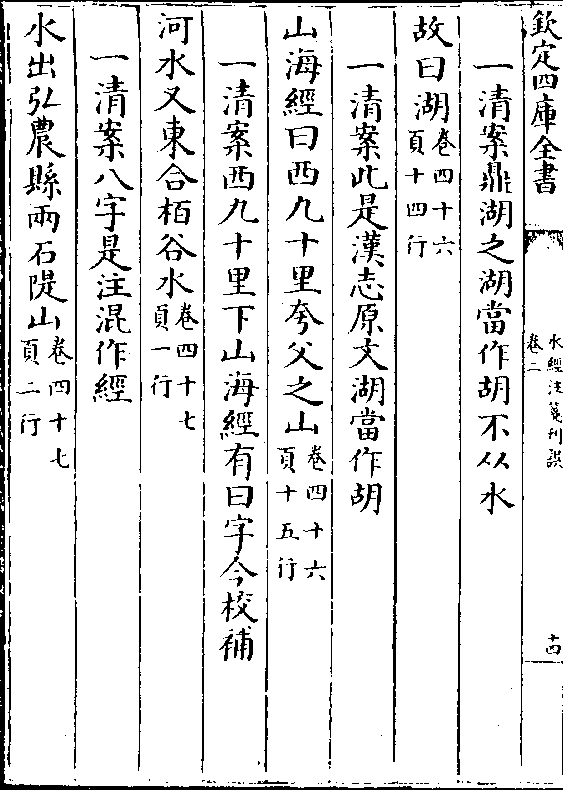 欽定四庫全書
水經注箋刊誤
卷二
十四
一清案鼎湖之湖當作胡不从水
故曰湖卷四十六頁十四行
一清案此是漢志原文湖當作胡
山海經曰西九十里夸父之山卷四十六頁十五行
一清案西九十里下山海經有曰字今校補
河水又東合栢谷水卷四十七頁一行
一清案八字是注混作經
水出弘農縣兩石隄山卷四十七頁二行